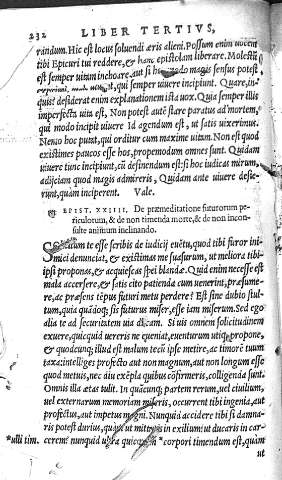 232 LIBER TERTIVS,
randum. Hic est locus soluendi æris alieni. Possum enim vocem
tibi Epicuri tui reddere, & hanc epistolam liberare. Molestũ
est semper uitam inchoare, aut si hoc modo magis sensus potest
exprimi, male uiuunt, qui semper uiuere incipiunt. Quare, in-
quis? desiderat enim explanationem ista uox. Quia semper illis
imperfecta uita est. Non potest autẽ stare paratus ad mortem,
qui modo incipit uiuere. Id agendum est, ut satis uixerimus.
Nemo hoc putat, qui orditur cum maxime uitam. Non est quod
existimes paucos esse hos, propemodum omnes sunt. Quidam
uiuere tunc incipiunt, cũ desinendum est: si hoc iudicas mirum,
adijciam quod magis admireris, Quidam ante uiuere desie-
runt, quàm inciperent. Vale.
EPIST. XXIIII. De præmeditatione futurorum pe-
riculorum, & de non timenda morte, & de non incon-
sulte animum inclinando.
Solicitum te esse scribis de iudicij euẽtu, quod tibi furor ini-
mici denunciat, & existimas me suasurum, ut meliora tibi-
ipsi proponas, & acquiescas spei blandæ. Quid enim necesse est
mala accersere, & satis cito patienda cum uenerint, præsume-
re, ac præsens tẽpus futuri metu perdere? Est sine dubio stul-
tum, quia quãdoq; sis futurus miser, esse iam miserum. Sed ego
alia te ad securitatem uia ducam. Si uis omnem solicitudinem
exuere, quicquid uereris ne eueniat, euenturum utiq; propone,
& quodcunq; illud est malum tecũ ipse metire, ac timorẽ tuum
taxa: intelliges profecto aut non magnum, aut non longum esse
quod metuis, nec diu exẽpla quibus cõfirmeris, colligenda sunt.
Omnis illa ætas tulit. In quàcunq; partem rerum, uel ciuilium,
uel externarum memoriam miseris, occurrent tibi ingenia, aut
profectus, aut impetus magni. Nunquid accidere tibi si damna-
ris potest durius, quàm ut mittaris in exilium: ut ducaris in car-
*ulli tim. cerem? nunquid ultra quicquam * corpori timendum est, quàm
ut